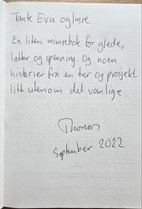 Tante Eva og Inre
En liten minnebok for glede,
latter og spenning. Og noen
historier fra en tur og prosjekt
litt utenom det vanlige.
Thomas
September 2022